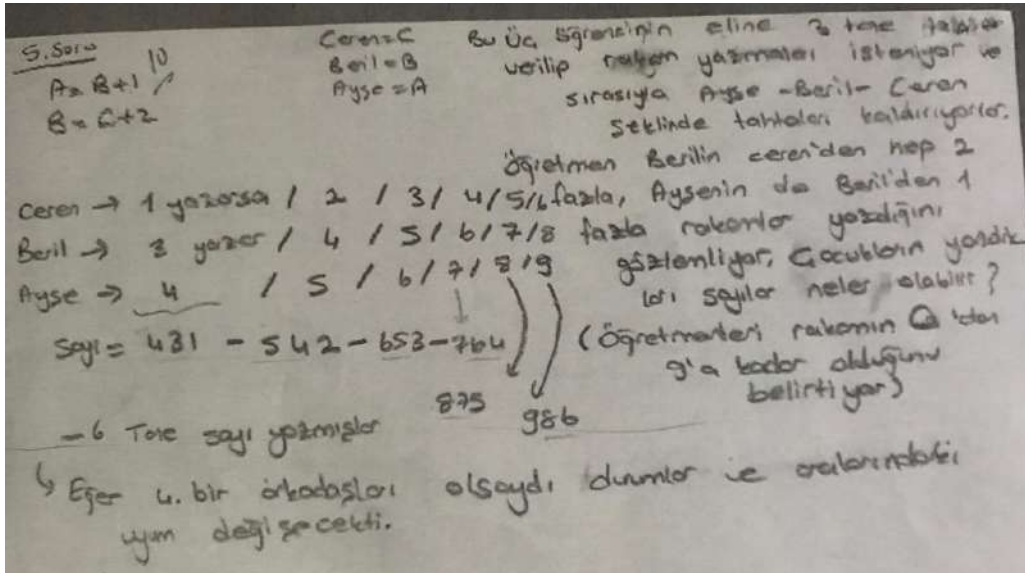 5. Soru
A = B+1 10
B = C+2
Ceren = C
Beril = B
Ayşe = A
Bu üç öğrencinin eline 3 tane
verilip rakam yazmaları isteniyor ve
sırasıyla Ayşe - Beril - Ceren
şeklinde tahtaları kaldırıyorlar.
Öğretmen Berilin ceren'den hep 2
fazla, Ayşenin de Beril'den 1
fazla rakamlar yazdığını
gözlemliyor, Çocukların yazdık
ları sayılar neler olabilir?
(Öğretmenleri rakamın 0'dan
9'a kadar olduğunu
belirtiyor)
Ceren → 1 yazarsa / 2 / 3 / 4 / 5 / 6
Beril → 3 yazar / 4 / 5 / 6 / 7 / 8
Ayşe → 4 / 5 / 6 / 7 / 8 / 9
Sayı = 431 - 542 - 653 - 764
875
986
- 6 Tane sayı yazmışlar
↳ Eğer 4. bir arkadaşları olsaydı durumlar ve aralarındaki
uyum değişecekti.